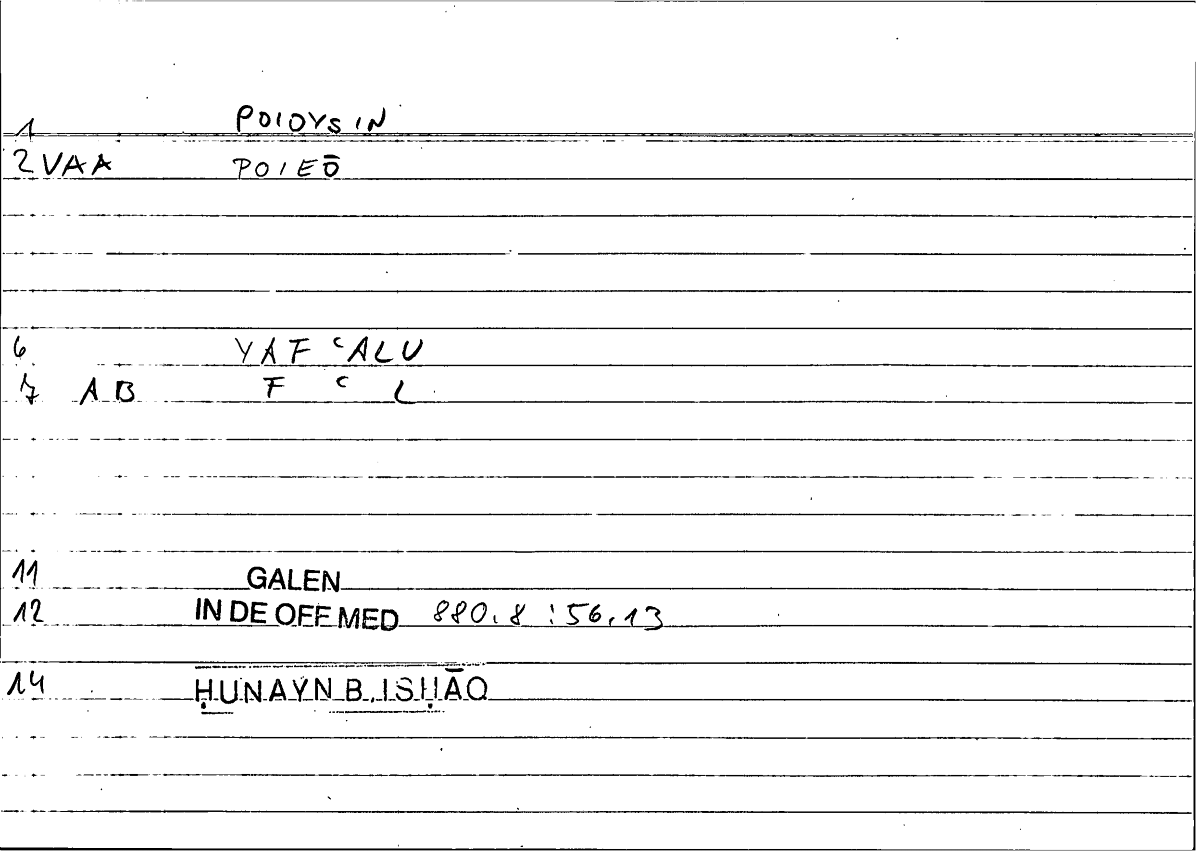 1 POIOYSIN
2 VAA POIEŌ
6 YAF ʿALU
7 AB F ʿ L
11 GALEN
12 IN DE OFF MED 880.8 : 56.13
14 ḤUNAYN B. ISḤĀQ